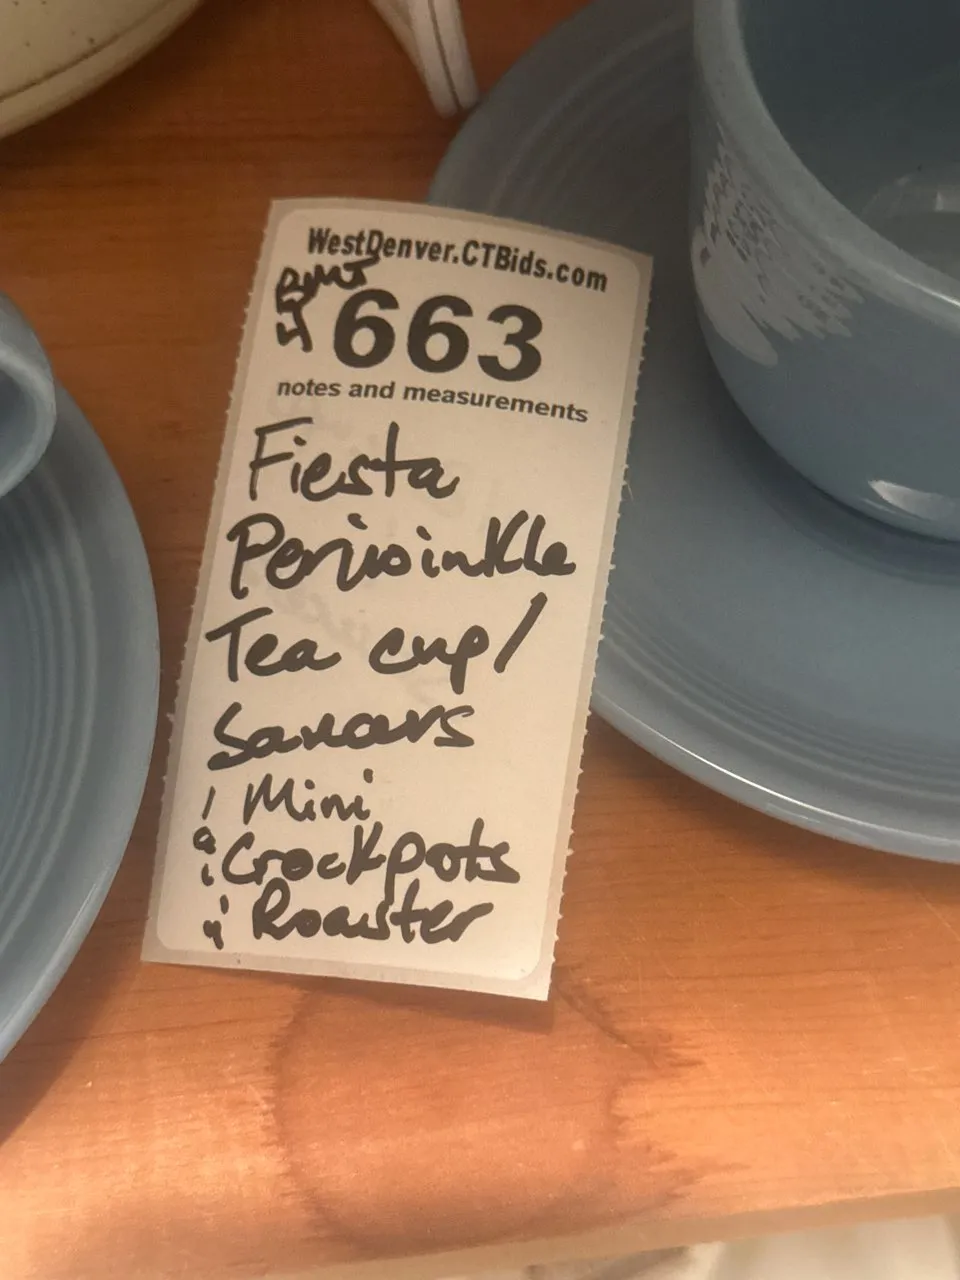 WestDenver.CTBids.com
BMT
4 663
notes and measurements
Fiesta
Periwinkle
Tea cup/
Saucers
Mini
Crockpots
Roaster